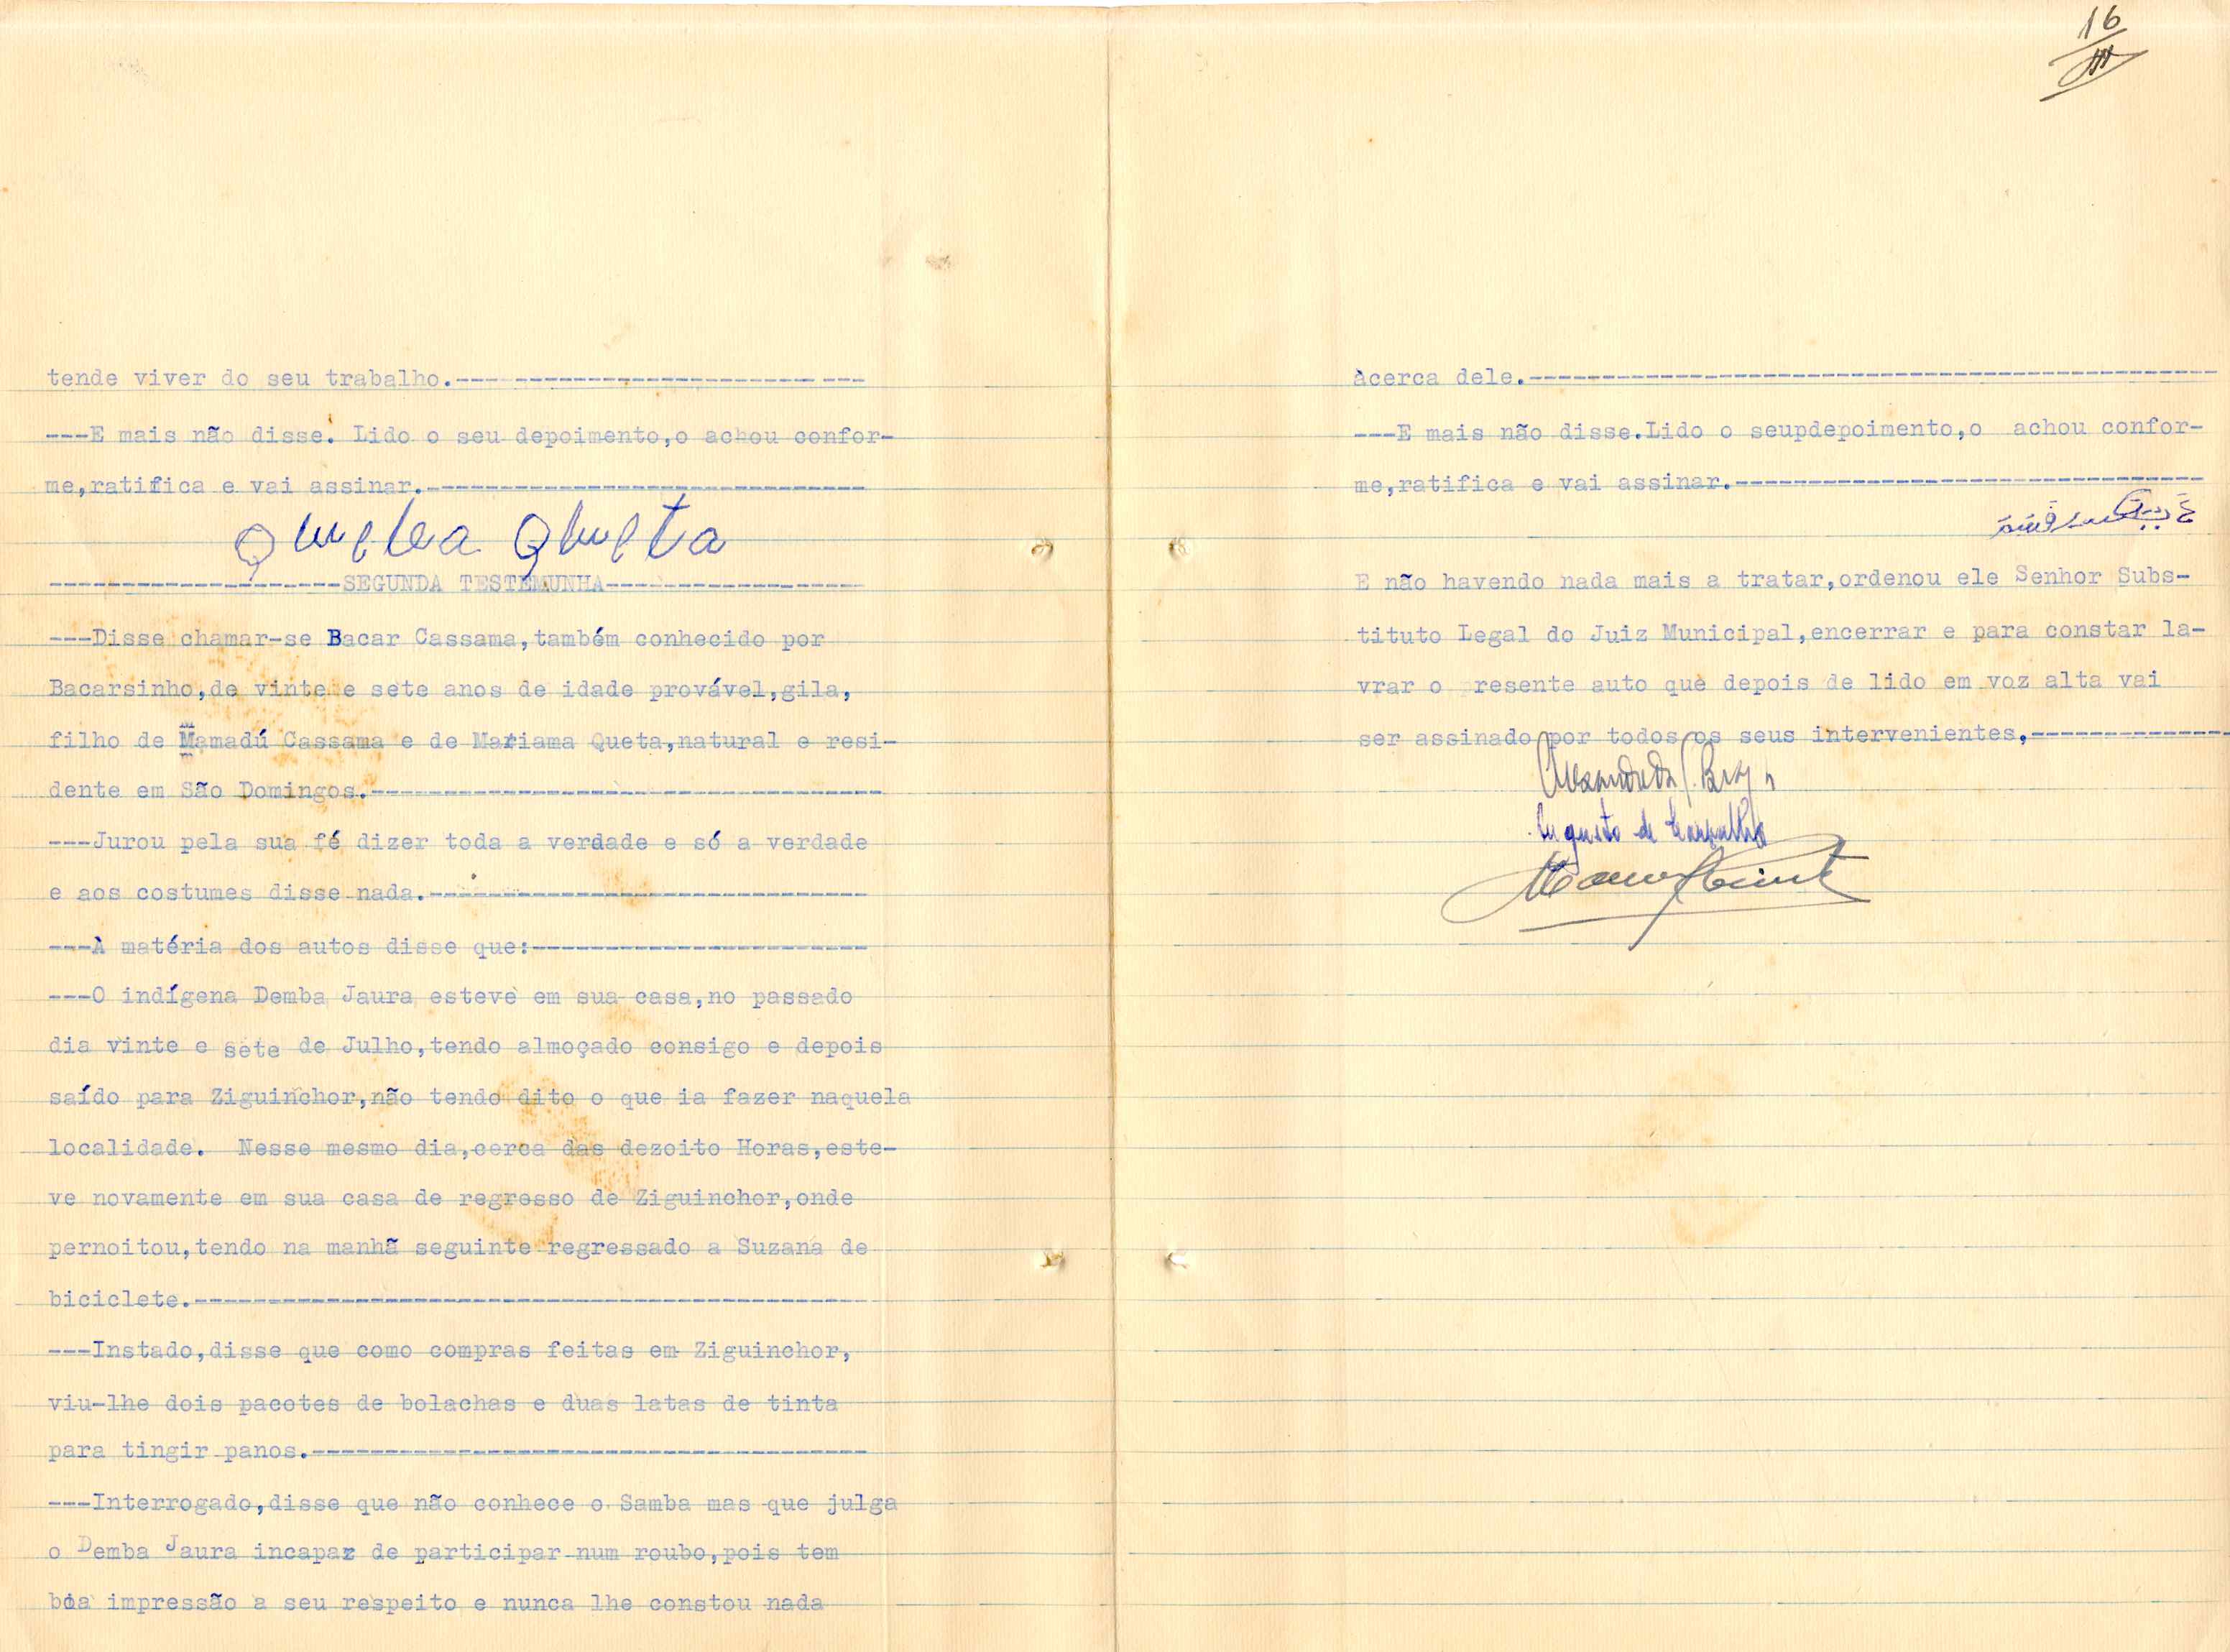 tende viver do seu trabalho.----------------------------
---E mais não disse. Lido o seu depoimento,o achou confor-
me,ratifica e vai assinar.------------------------------
Quelea Queta
--------------------SEGUNDA TESTEMUNHA------------------
---Disse chamar-se Bacar Cassama,também conhecido por
Bacarsinho,de vinte e sete anos de idade provável,gila,
filho de Mamadú Cassama e de Mariama Queta,natural e resi-
dente em São Domingos.-----------------------------------
---Jurou pela sua fé dizer toda a verdade e só a verdade
e aos costumes disse nada.------------------------------
---À matéria dos autos disse que:-----------------------
---O indígena Demba Jaura esteve em sua casa,no passado
dia vinte e sete de Julho,tendo almoçado consigo e depois
saído para Ziguinchor,não tendo dito o que ia fazer naquela
localidade. Nesse mesmo dia,cerca das dezoito Horas,este-
ve novamente em sua casa de regresso de Ziguinchor,onde
pernoitou,tendo na manhã seguinte regressado a Suzana de
biciclete.----------------------------------------------
---Instado,disse que como compras feitas em Ziguinchor,
viu-lhe dois pacotes de bolachas e duas latas de tinta
para tingir panos.--------------------------------------
---Interrogado,disse que não conhece o Samba mas que julga
o Demba Jaura incapaz de participar num roubo,pois tem
boa impressão a seu respeito e nunca lhe constou nada
16
àcerca dele.-----------------------------------------------
---E mais não disse.Lido o seupdepoimento,o achou confor-
me,ratifica e vai assinar.--------------------------------
E não havendo nada mais a tratar,ordenou ele Senhor Subs-
tituto Legal do Juiz Municipal,encerrar e para constar la-
vrar o resente auto que depois de lido em voz alta vai
ser assinado por todos os seus intervenientes.--------------
Augusto de Carvalho